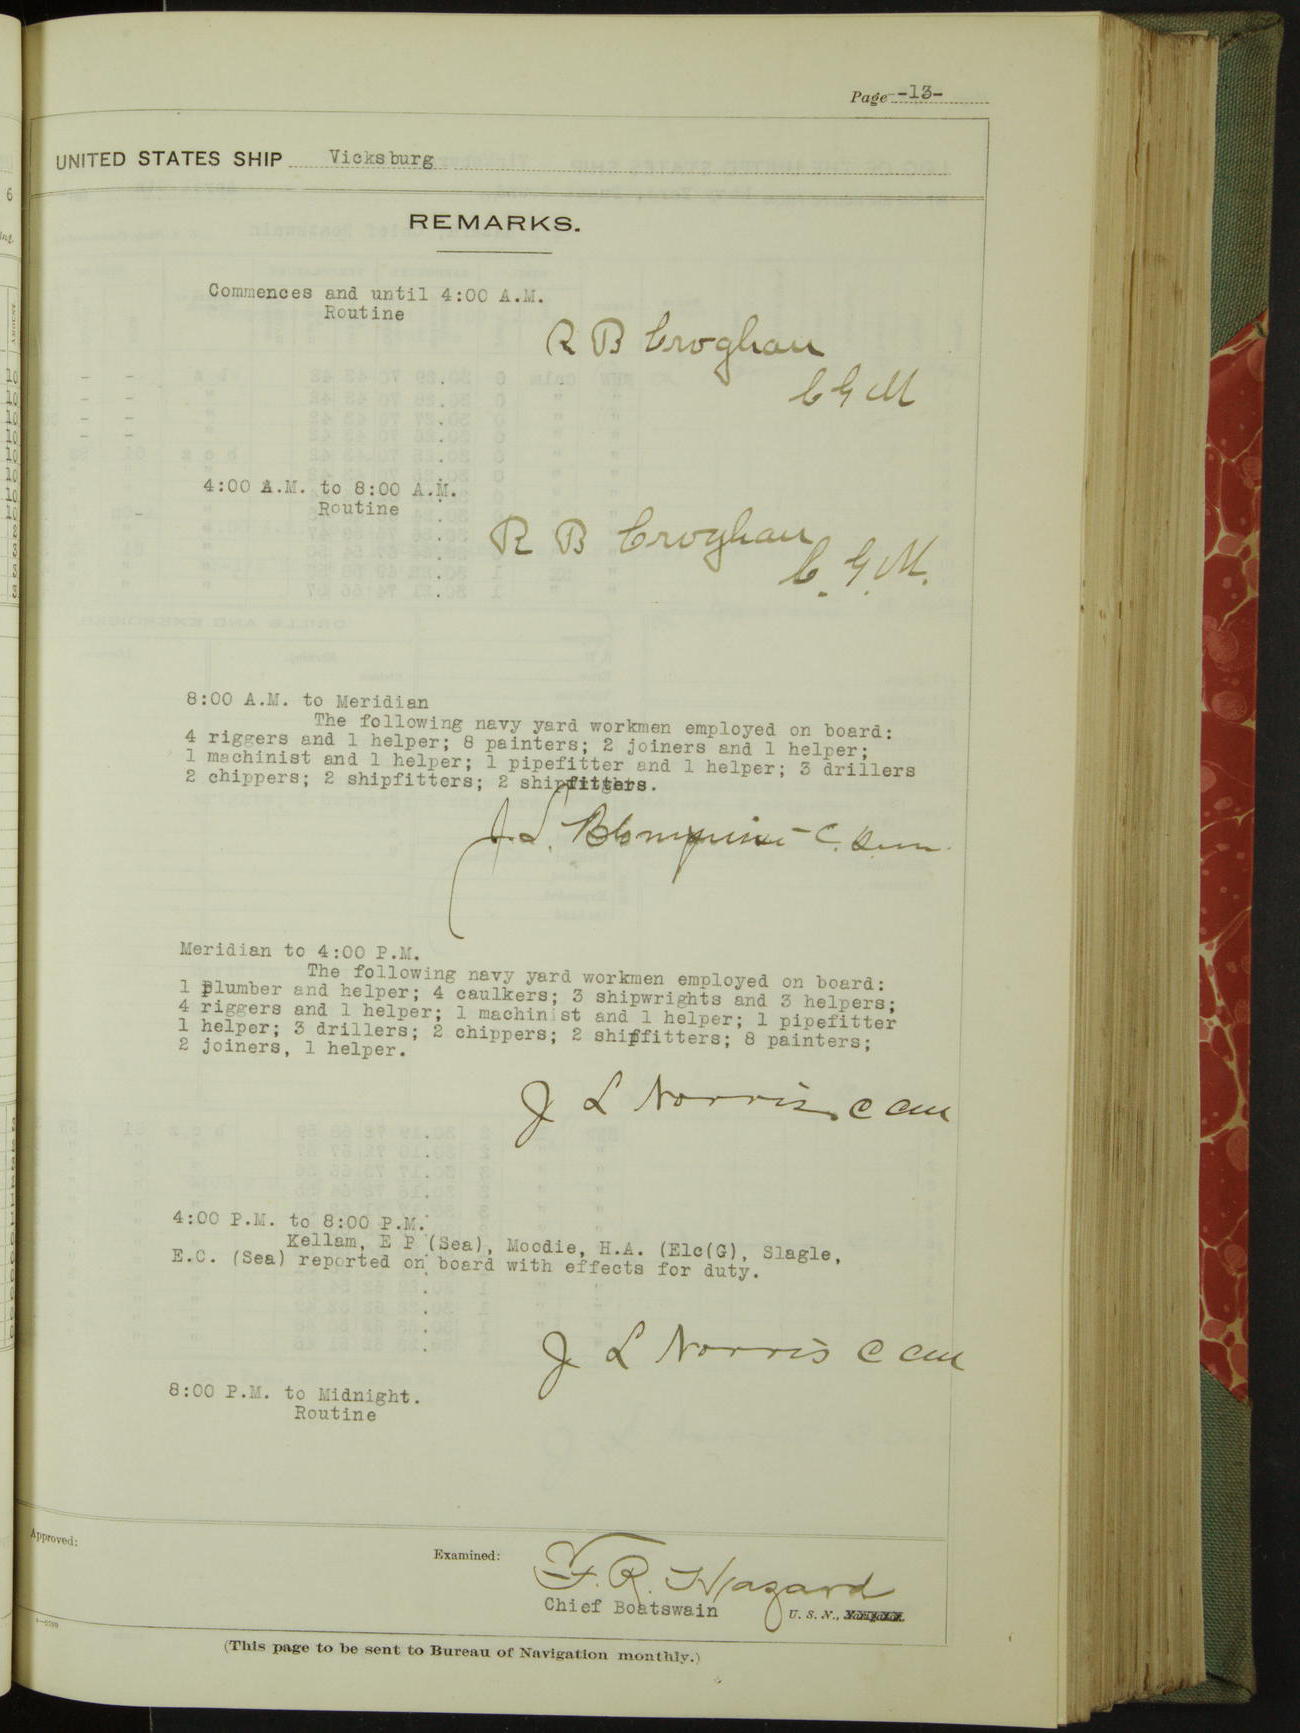 Page -13-
UNITED STATES SHIP Vicksburg
REMARKS.
Commences and until 4:00 A.M.
Routine
R B Croghan
C G M
4:00 A.M. to 8:00 A.M.
Routine
R B Croghan
C. G. M.
8:00 A.M. to Meridian
The following navy yard workmen employed on board:
4 riggers and 1 helper; 8 painters; 2 joiners and 1 helper;
1 machinist and 1 helper; 1 pipefitter and 1 helper; 3 drillers
2 chippers; 2 shipfitters; 2 shipfitters.
J. L.
Meridian to 4:00 P.M.
The following navy yard workmen employed on board:
1 plumber and helper; 4 caulkers; 3 shipwrights and 3 helpers;
4 riggers and 1 helper; 1 machinist and 1 helper; 1 pipefitter
1 helper; 3 drillers; 2 chippers; 2 shipfitters; 8 painters;
2 joiners, 1 helper.
J L Norris C CM
4:00 P.M. to 8:00 P.M.
Kellam, E P (Sea), Moodie, H.A. (Elc(G), Slagle,
E.C. (Sea) reported on board with effects for duty.
J L Norris C CM
8:00 P.M. to Midnight.
Routine
Approved:
Examined:
F. R. Hazard
Chief Boatswain U. S. N.,
(This page to be sent to Bureau of Navigation monthly.)